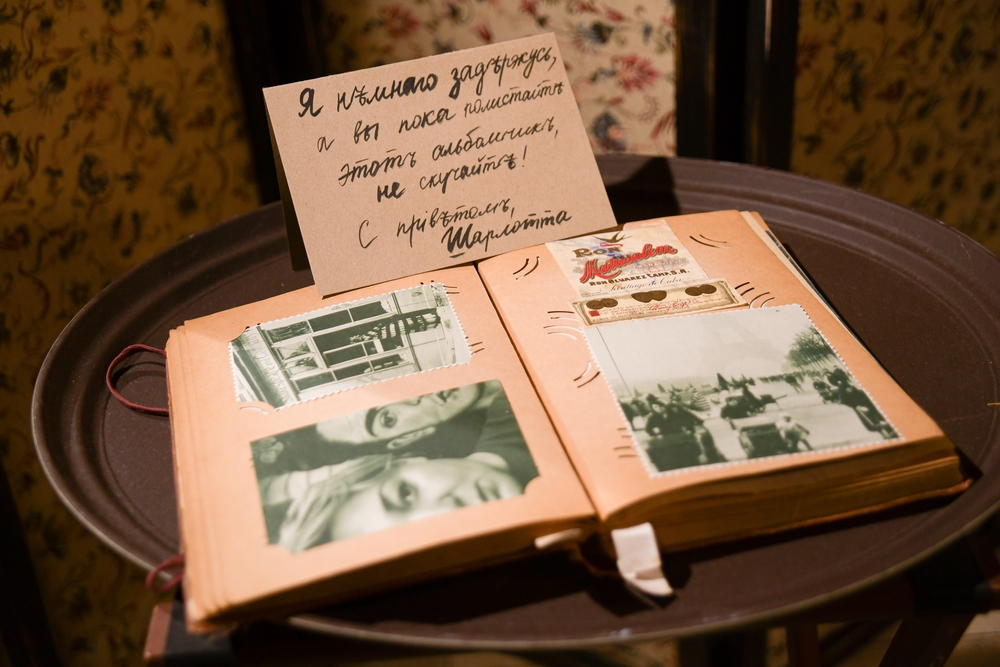 Я нѣмнаго задѣржусь,
а вы пока полистайтѣ
этотъ альбамчикъ,
не скучайтѣ!
С прівѣтомъ,
Шарлотта
RON
Matusalem
RON ALVAREZ CAMP, S.A.
Santiago de Cuba